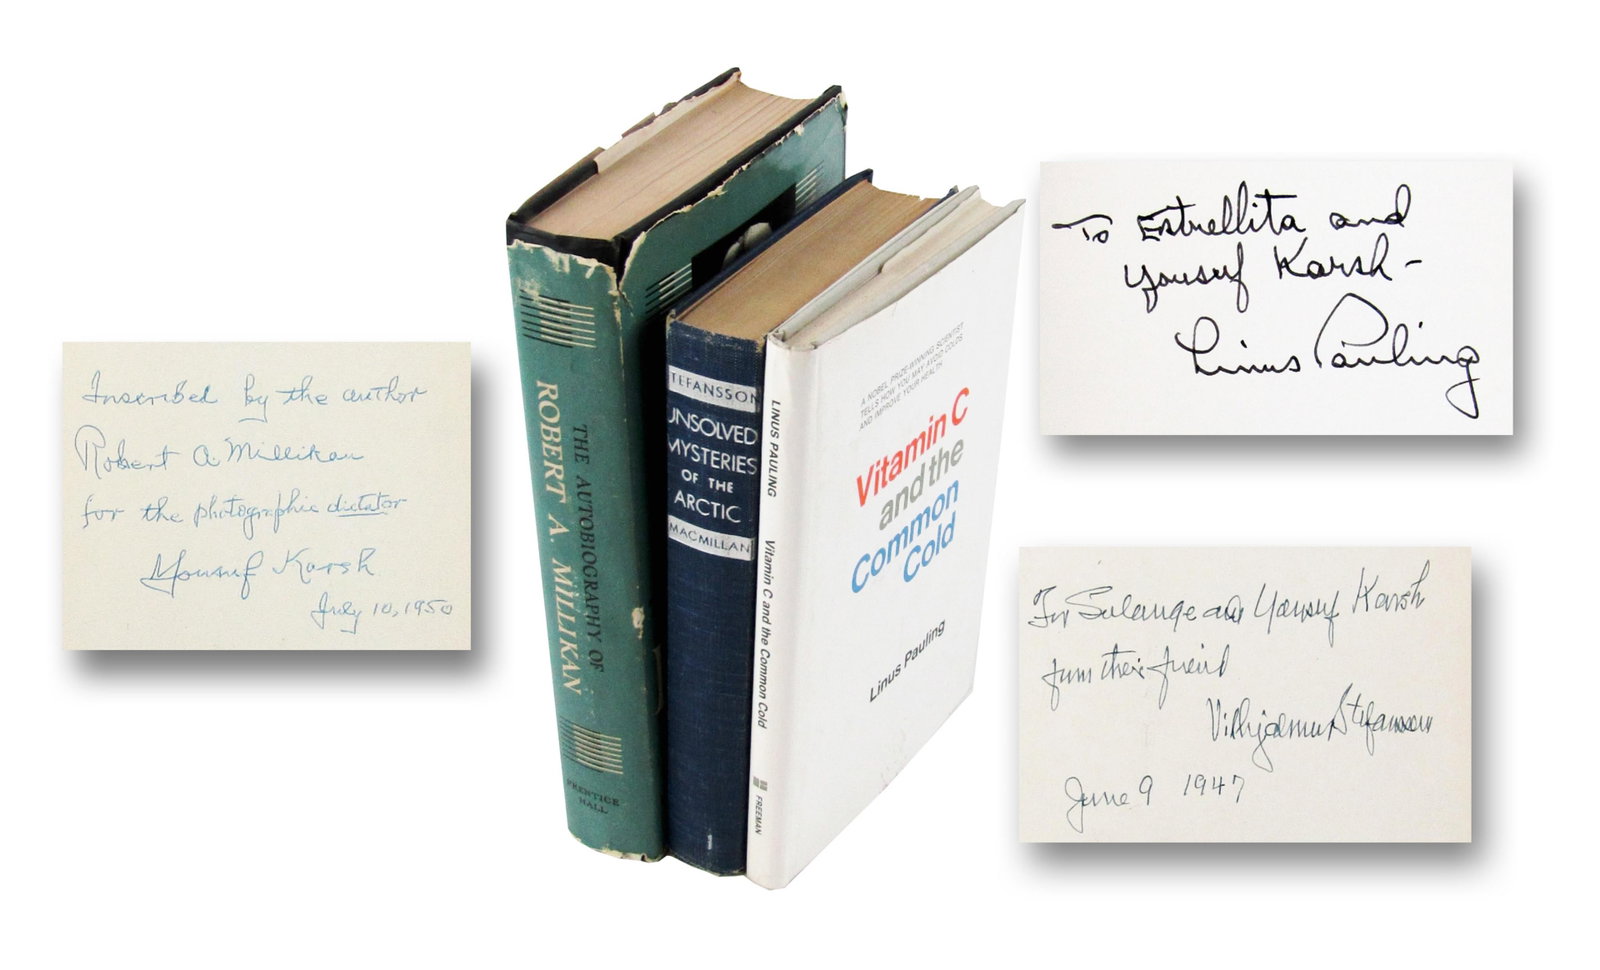 Inscribed by the author
Robert A. Millikan
for the photographic dictator
Yousuf Karsh
July 10, 1950
THE AUTOBIOGRAPHY OF
ROBERT A. MILLIKAN
PRENTICE
HALL
TEFANSSON
UNSOLVED
MYSTERIES
OF THE
ARCTIC
MACMILLAN
LINUS PAULING Vitamin C and the Common Cold FREEMAN
A NOBEL PRIZE-WINNING SCIENTIST
TELLS HOW YOU MAY AVOID COLDS
AND IMPROVE YOUR HEALTH
Vitamin C
and the
Common
Cold
Linus Pauling
To Estrellita and
Yousuf Karsh -
Linus Pauling
For Solange and Yousuf Karsh
from their friend
Vilhjalmur Stefansson
June 9 1947